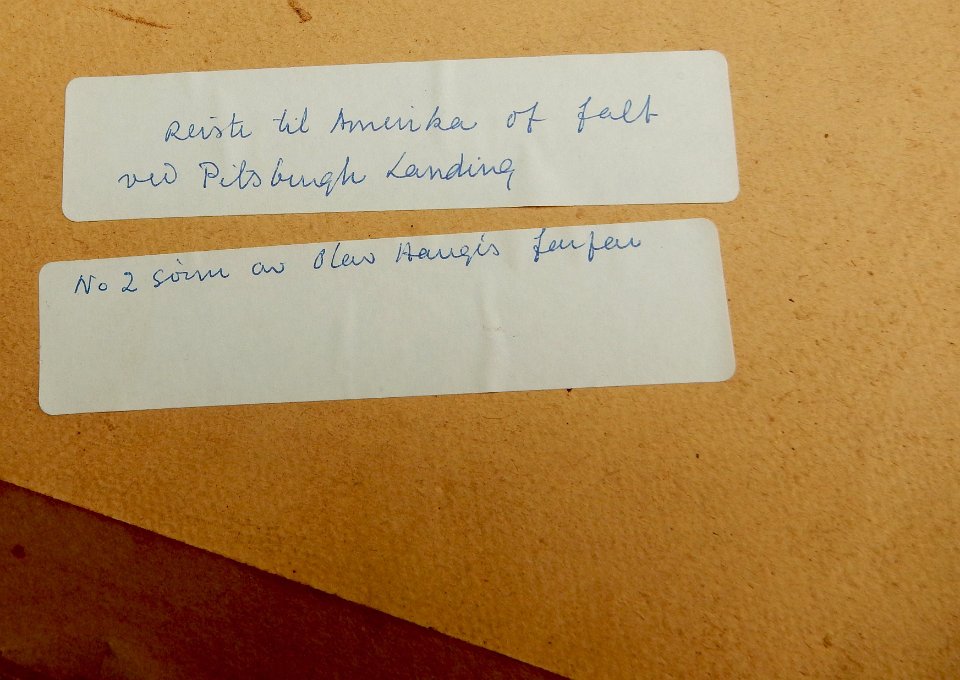 Reiste til Amerika of falt
ved Pitsburgh Landing
No 2 av Olav Haugis farfar